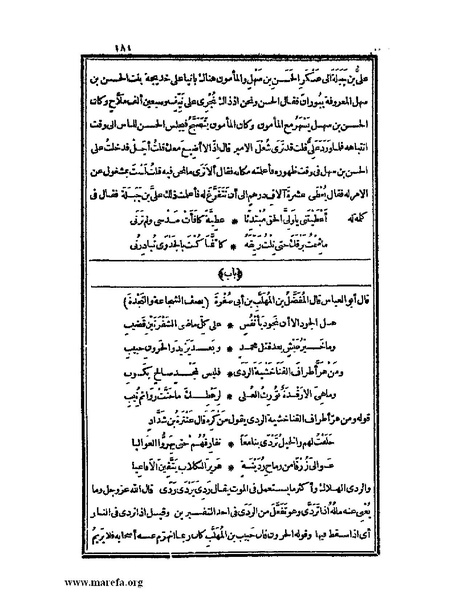 ١٨١
على بن جبلة الى عسكر الحسن بن سهل والمأمون هناك بانيا على خديجة بنت الحسن بن
سهل المعروفة ببوران فقال الحسن ونحن اذ ذاك نجرى على نيف وسبعين ألف ملاح وكان
الحسن بن سهل يسهر مع المأمون وكان المأمون يتصبح فيجلس الحسن للناس الى وقت
انتباهه فلما ورد على قلت قد ترى شغل الامير قال اذا لا أضيع معك قلت أجل فدخلت على
الحسن بن سهل فى وقت ظهوره فأعلمته مكانه فقال ألا ترى ما نحن فيه قلت لست بمشغول عن
الامر له فقال يعطى عشرة آلاف درهم الى أن نتفرغ له فأعلمت ذلك على بن جبلة فقال فى
كلمة له
أعطيتنى يا ولى الحق مبتدئا * عطية كافأت مدحى ولم ترنى
ما شمت برقك حتى نلت ريقه * كأنما كنت بالجدوى تبادرنى
﴿باب﴾
قال أبو العباس قال المفضل بن المهلب بن أبى صفرة (يصف الشجاعة والنجدة)
هل الجود الا أن نجود بأنفس * على كل ماضى الشفرتين قضيب
وما خير عيش بعد قتل محمد * وبعد يزيد والحرون حبيب
ومن هر أطراف القنا خشية الردى * فليس لمجد صالح بكسوب
وما هى الا رقدة تورث العلى * لرهطك ما حنت روائم نيب
قوله ومن هر أطراف القنا خشية الردى يقول من كره قال عنترة بن شداد
حلفت لهم والخيل تردى بنا معا * نفارقهم حتى يهروا العواليا
عوالى زرقا من رماح ردينة * هرير الكلاب يتقين الافاعيا
والردى الهلاك وأكثر ما يستعمل فى الموت يقال ردى يردى ردى قال الله عز وجل وما
يغنى عنه ماله اذا تردى وهو تفعل من الردى فى أحد التفسيرين وقيل اذا تردى فى النار
أى اذا سقط فيها وقوله الحرون فان حبيب بن المهلب كان ربما انهزم عنه أصحابه فلا يريم
www.marefa.org